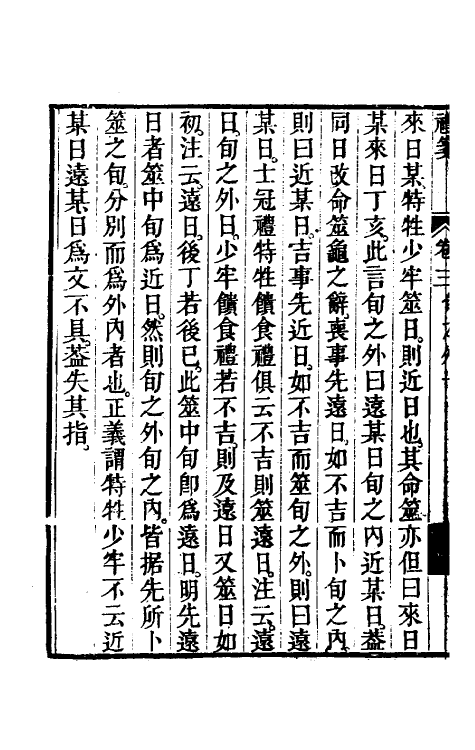 禮箋
卷三
來日某。特牲少牢筮日。則近日也。其命筮亦但曰來日
某來日丁亥。此言旬之外曰遠某日旬之內近某日。葢
同日改命筮龜之辭。喪事先遠日。如不吉而卜旬之內。
則曰近某日。吉事先近日。如不吉而筮旬之外。則曰遠
某日。士冠禮特牲饋食禮俱云不吉則筮遠日。注云。遠
日。旬之外日。少牢饋食禮若不吉。則及遠日又筮日如
初。注云。遠日。後丁若後已。此筮中旬卽爲遠日。明先遠
日者筮中旬爲近日。然則旬之外旬之內。皆据先所卜
筮之旬。分別而爲外內者也。正義謂特牲少牢不云近
某日遠某日爲文不具。葢失其指。